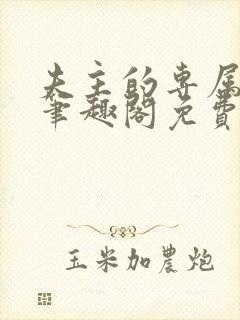 夫主的专属
笔趣阁免费
玉米加農炮